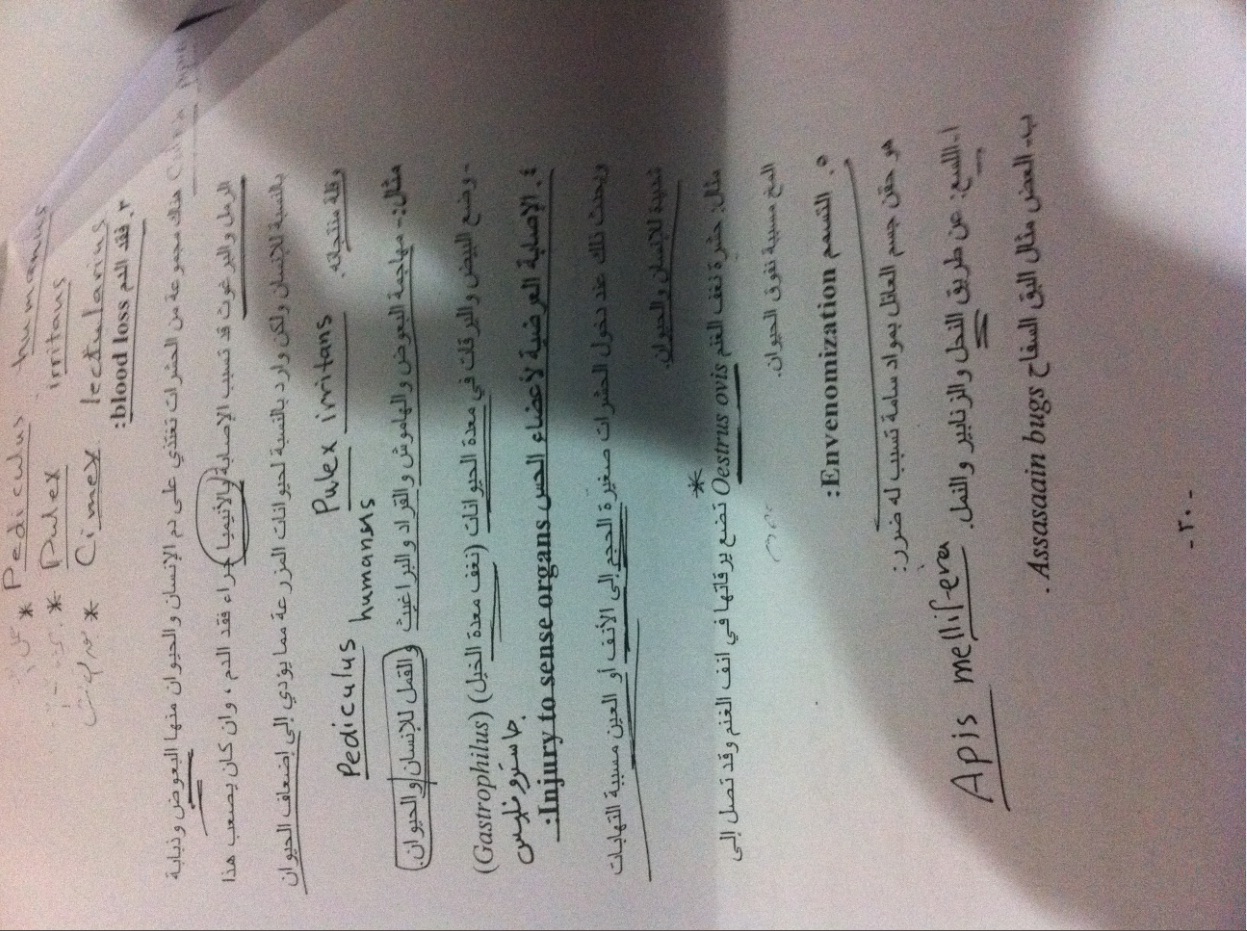 * Pediculus humanus
* Pulex irritans
* Cimex lectularius
٣. فقد الدم blood loss:
هناك مجموعة من الحشرات تغتذي على دم الإنسان والحيوان منها البعوض وذبابة
الرمل والبرغوث قد تسبب الإصابة بالأنيميا جراء فقد الدم ، وان كان يصعب هذا
بالنسبة للإنسان ولكن وارد بالنسبة لحيوانات المزرعة مما يؤدي إلى إضعاف الحيوان
وقلة منتجاته.
Pediculus humansis Pulex irritans
مثال:- مهاجمة البعوض والهاموش والقراد والبراغيث والقمل للإنسان والحيوان.
- وضع البيض واليرقات في معدة الحيوانات (نغف معدة الخيل) (Gastrophilus)
جاستروفيلس
٤. الإصابة العرضية لأعضاء الحس Injury to sense organs:
ويحدث ذلك عند دخول الحشرات صغيرة الحجم إلى الأنف أو العين مسببة التهابات
شديدة للإنسان والحيوان.
مثال: حشرة نغف الغنم Oestrus ovis تضع يرقاتها في انف الغنم وقد تصل إلى
المخ مسببة نفوق الحيوان.
٥. التسمم Envenomization:
هو حقن جسم العائل بمواد سامة تسبب له ضرر:
ا- اللسع: عن طريق النحل والزنابير والنمل. Apis mellifera
ب- العض مثال البق السفاح Assasaain bugs .
- ٢٠ -